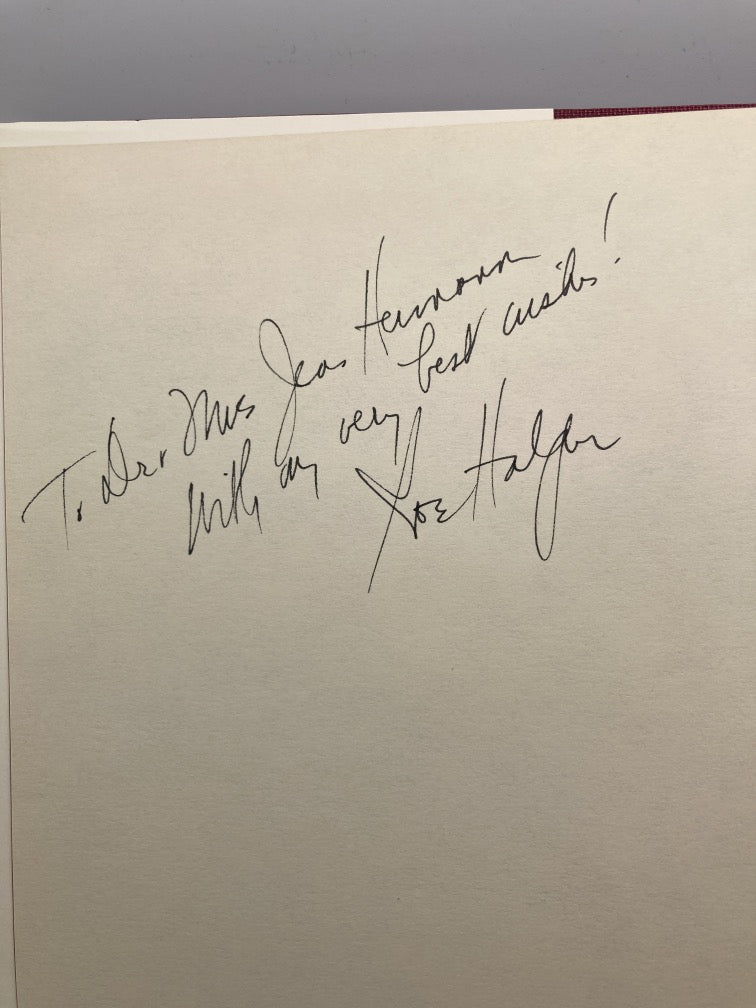 To Dr + Mrs Jean Hermann
With my very best wishes!
Joe